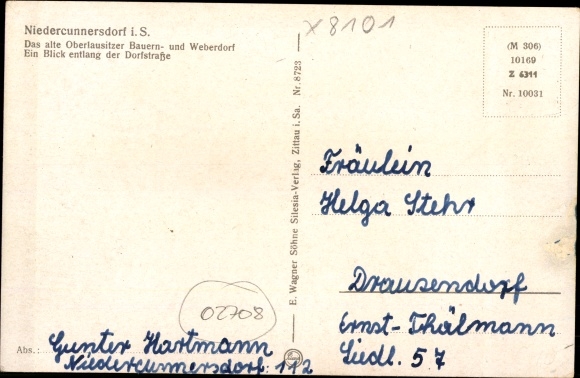 Niedercunnersdorf i. S.
Das alte Oberlausitzer Bauern- und Weberdorf
Ein Blick entlang der Dorfstraße
x 8101
(M 306)
10169
Z 6311
Nr. 10031
E. Wagner Söhne Silesia-Verlag, Zittau i. Sa. Nr. 8723
Fräulein
Helga Stehr
Drausendorf
Ernst-Thälmann
Siedl. 57
02708
Abs.: Gunter Hartmann
Niedercunnersdorf: 112